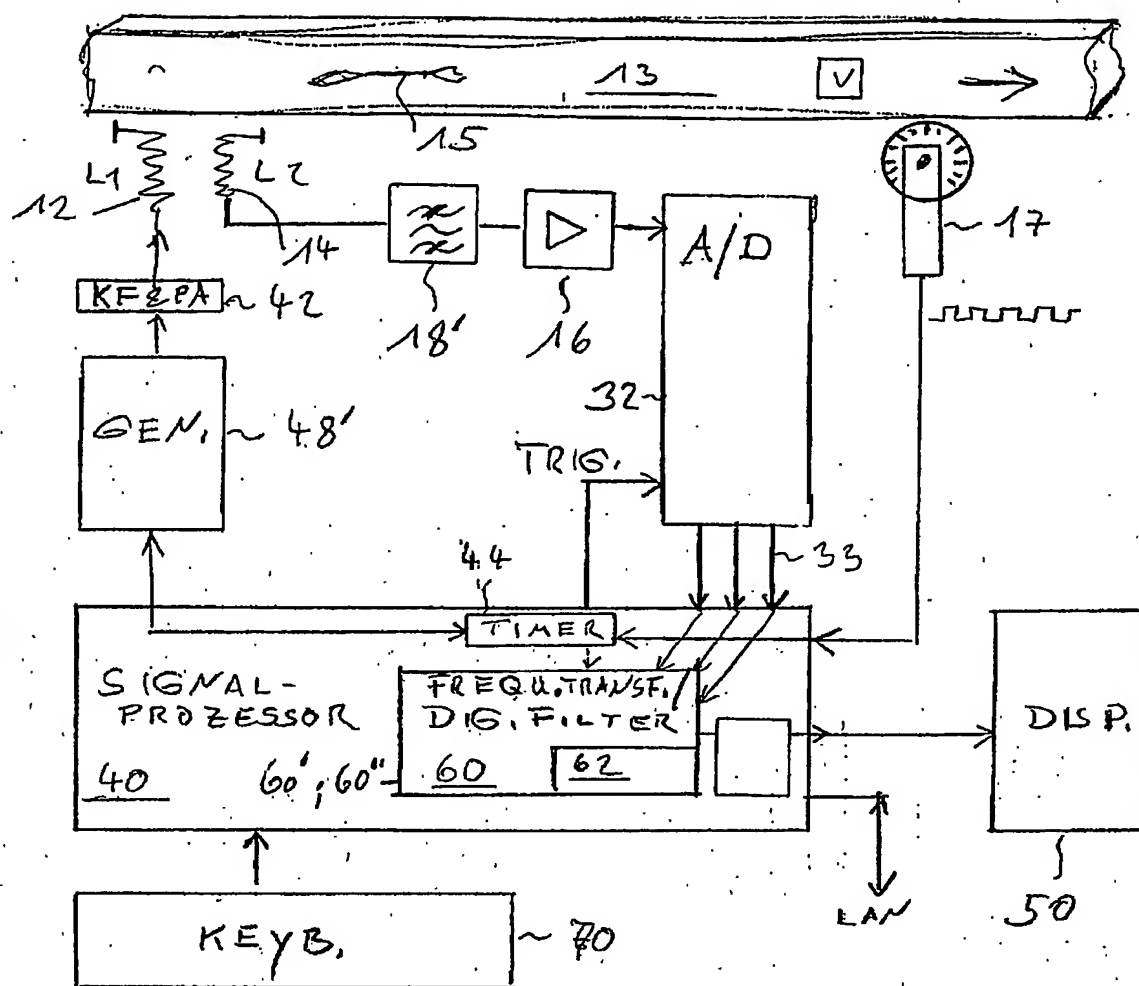 13
V
15
L1
L2
12
14
17
A/D
42
18'
16
32
GEN.
48'
TRIG.
33
44
TIMER
SIGNAL-
PROZESSOR
FREQU.TRANSF./
DIG.FILTER
DISP.
40
60'; 60"
60
62
LAN
50
KEYB.
70